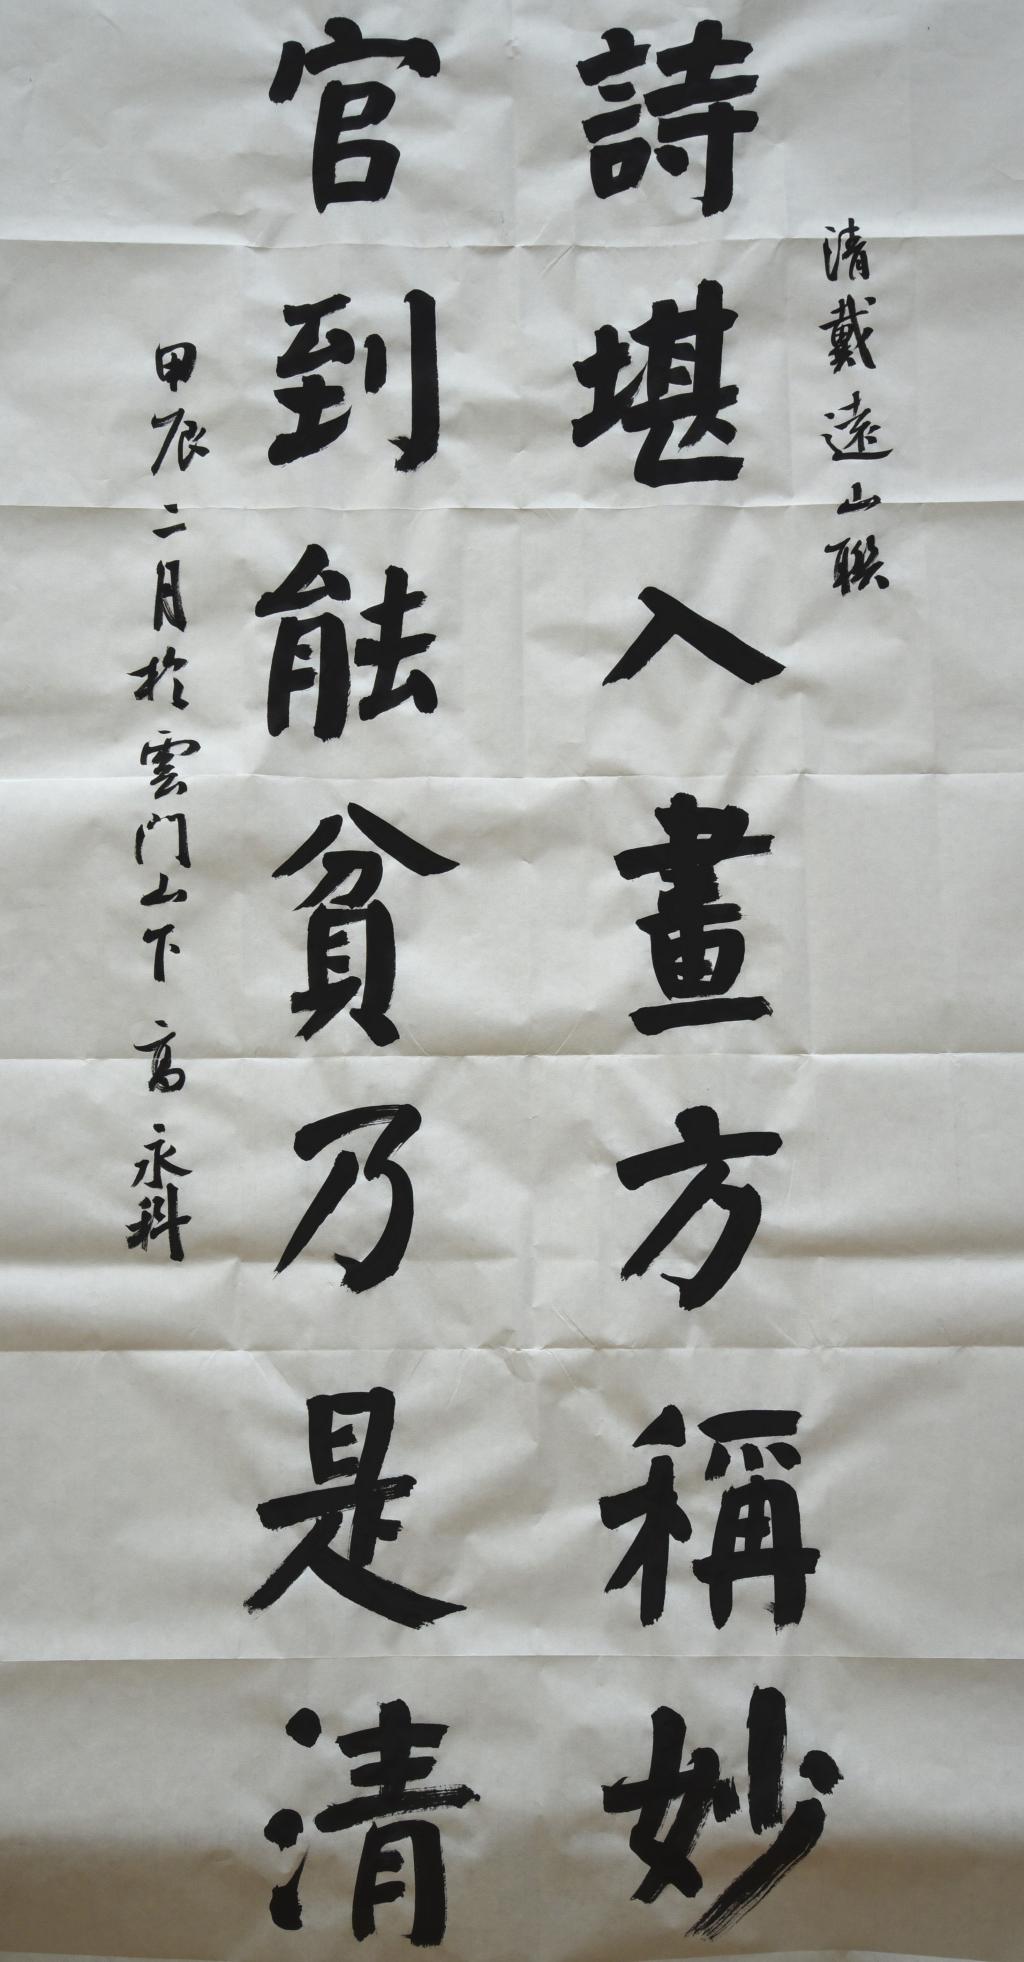 清戴遠山聯
詩堪入畫方稱妙
官到能貧乃是清
甲辰二月於雲門山下高永科